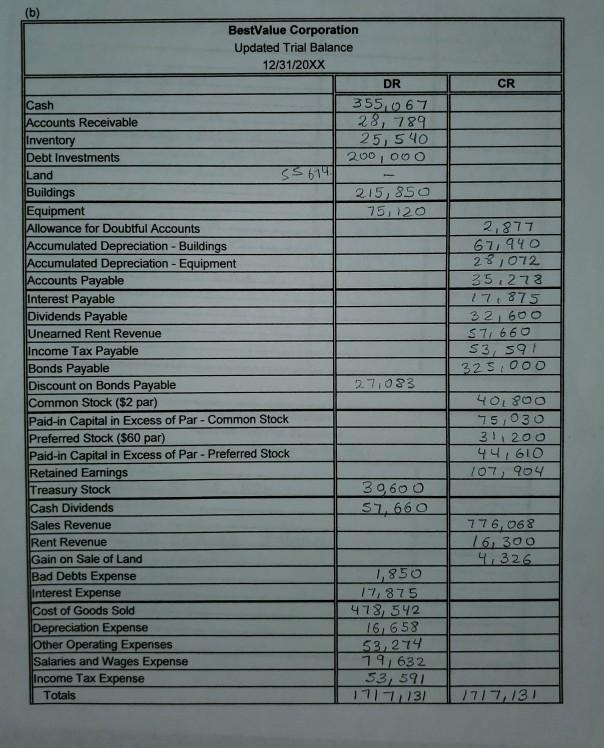 (b)
BestValue Corporation
Updated Trial Balance
12/31/20XX
DR CR
Cash 355,067
Accounts Receivable 28,789
Inventory 25,540
Debt Investments 200,000
Land 55614 -
Buildings 215,850
Equipment 75,120
Allowance for Doubtful Accounts 2,877
Accumulated Depreciation - Buildings 67,940
Accumulated Depreciation - Equipment 28,072
Accounts Payable 35,278
Interest Payable 17,875
Dividends Payable 32,600
Unearned Rent Revenue 57,660
Income Tax Payable 53,591
Bonds Payable 325,000
Discount on Bonds Payable 27,083
Common Stock ($2 par) 40,800
Paid-in Capital in Excess of Par - Common Stock 75,030
Preferred Stock ($60 par) 31,200
Paid-in Capital in Excess of Par - Preferred Stock 44,610
Retained Earnings 107,904
Treasury Stock 30,600
Cash Dividends 57,660
Sales Revenue 776,068
Rent Revenue 16,300
Gain on Sale of Land 4,326
Bad Debts Expense 1,850
Interest Expense 17,875
Cost of Goods Sold 478,542
Depreciation Expense 16,658
Other Operating Expenses 53,274
Salaries and Wages Expense 79,632
Income Tax Expense 53,591
Totals 1717,131 1717,131